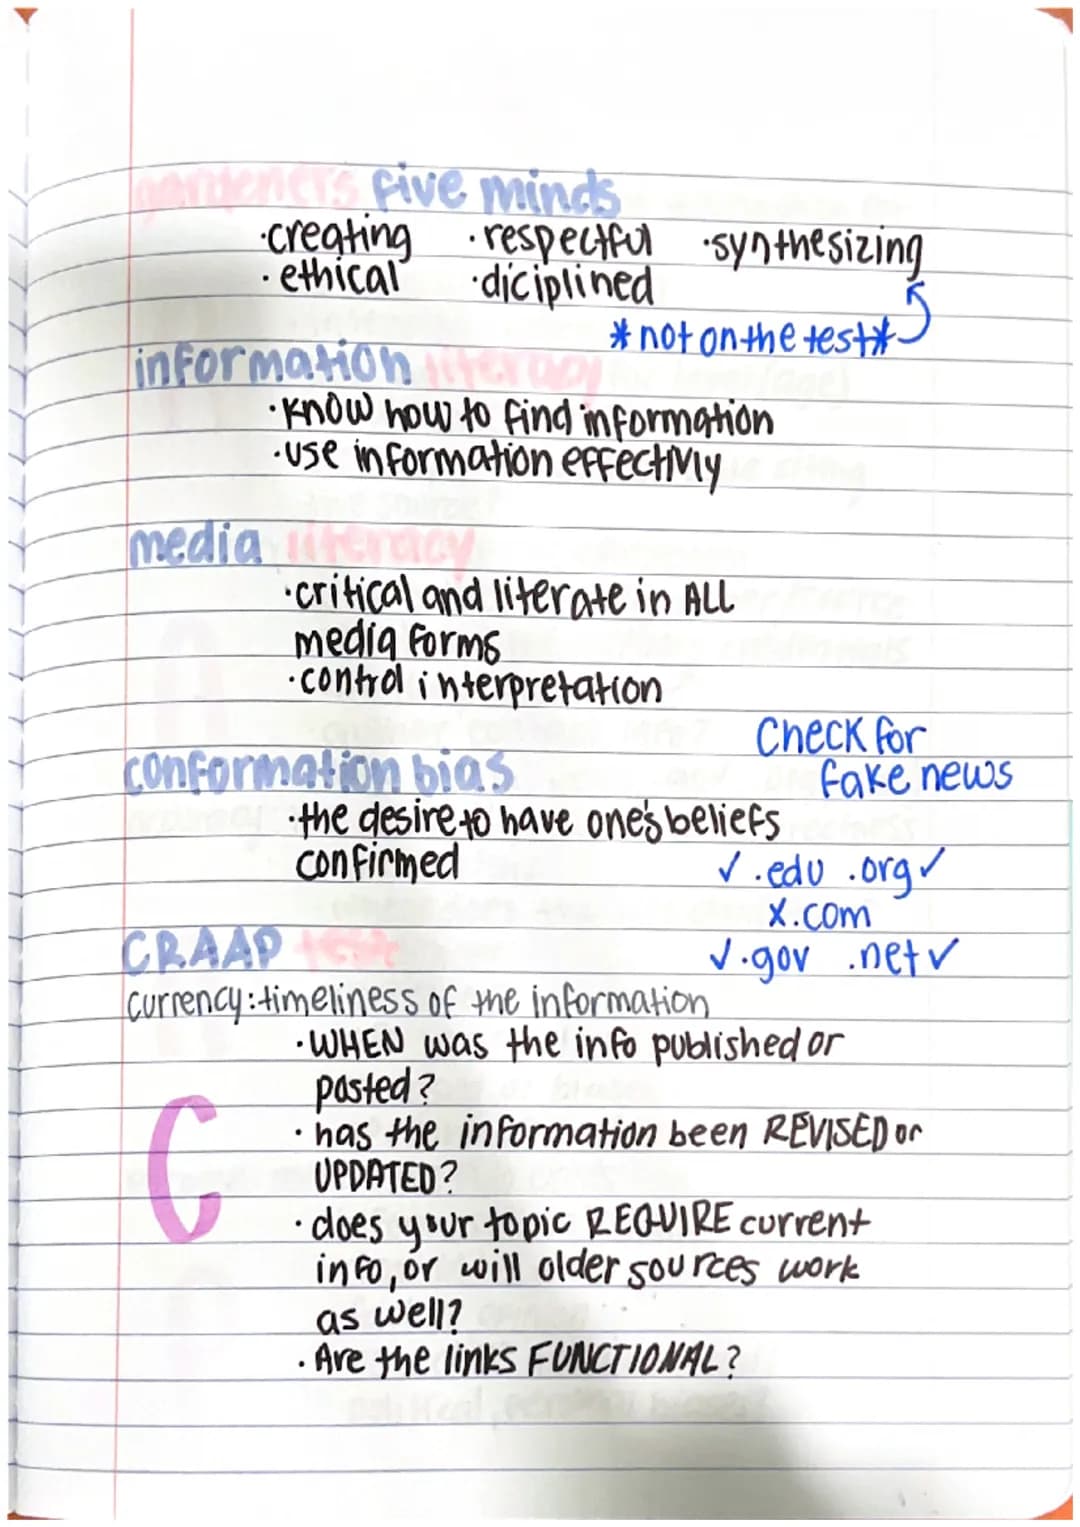 gardeners five minds
·creating ·respectful ·synthesizing
·ethical ·diciplined
*not on the test*
information literacy
·know how to find information
·use information effectivly
media literacy
·critical and literate in ALL
media forms
·control interpretation
Check for
fake news
conformation bias
·the desire to have one's beliefs
confirmed
✓.edu .org✓
x.com
✓.gov .net✓
CRAAP test
currency: timeliness of the information
·WHEN was the info published or
posted?
·has the information been REVISED or
UPDATED?
C
·does your topic REQUIRE current
info, or will older sources work
as well?
·Are the links FUNCTIONAL?